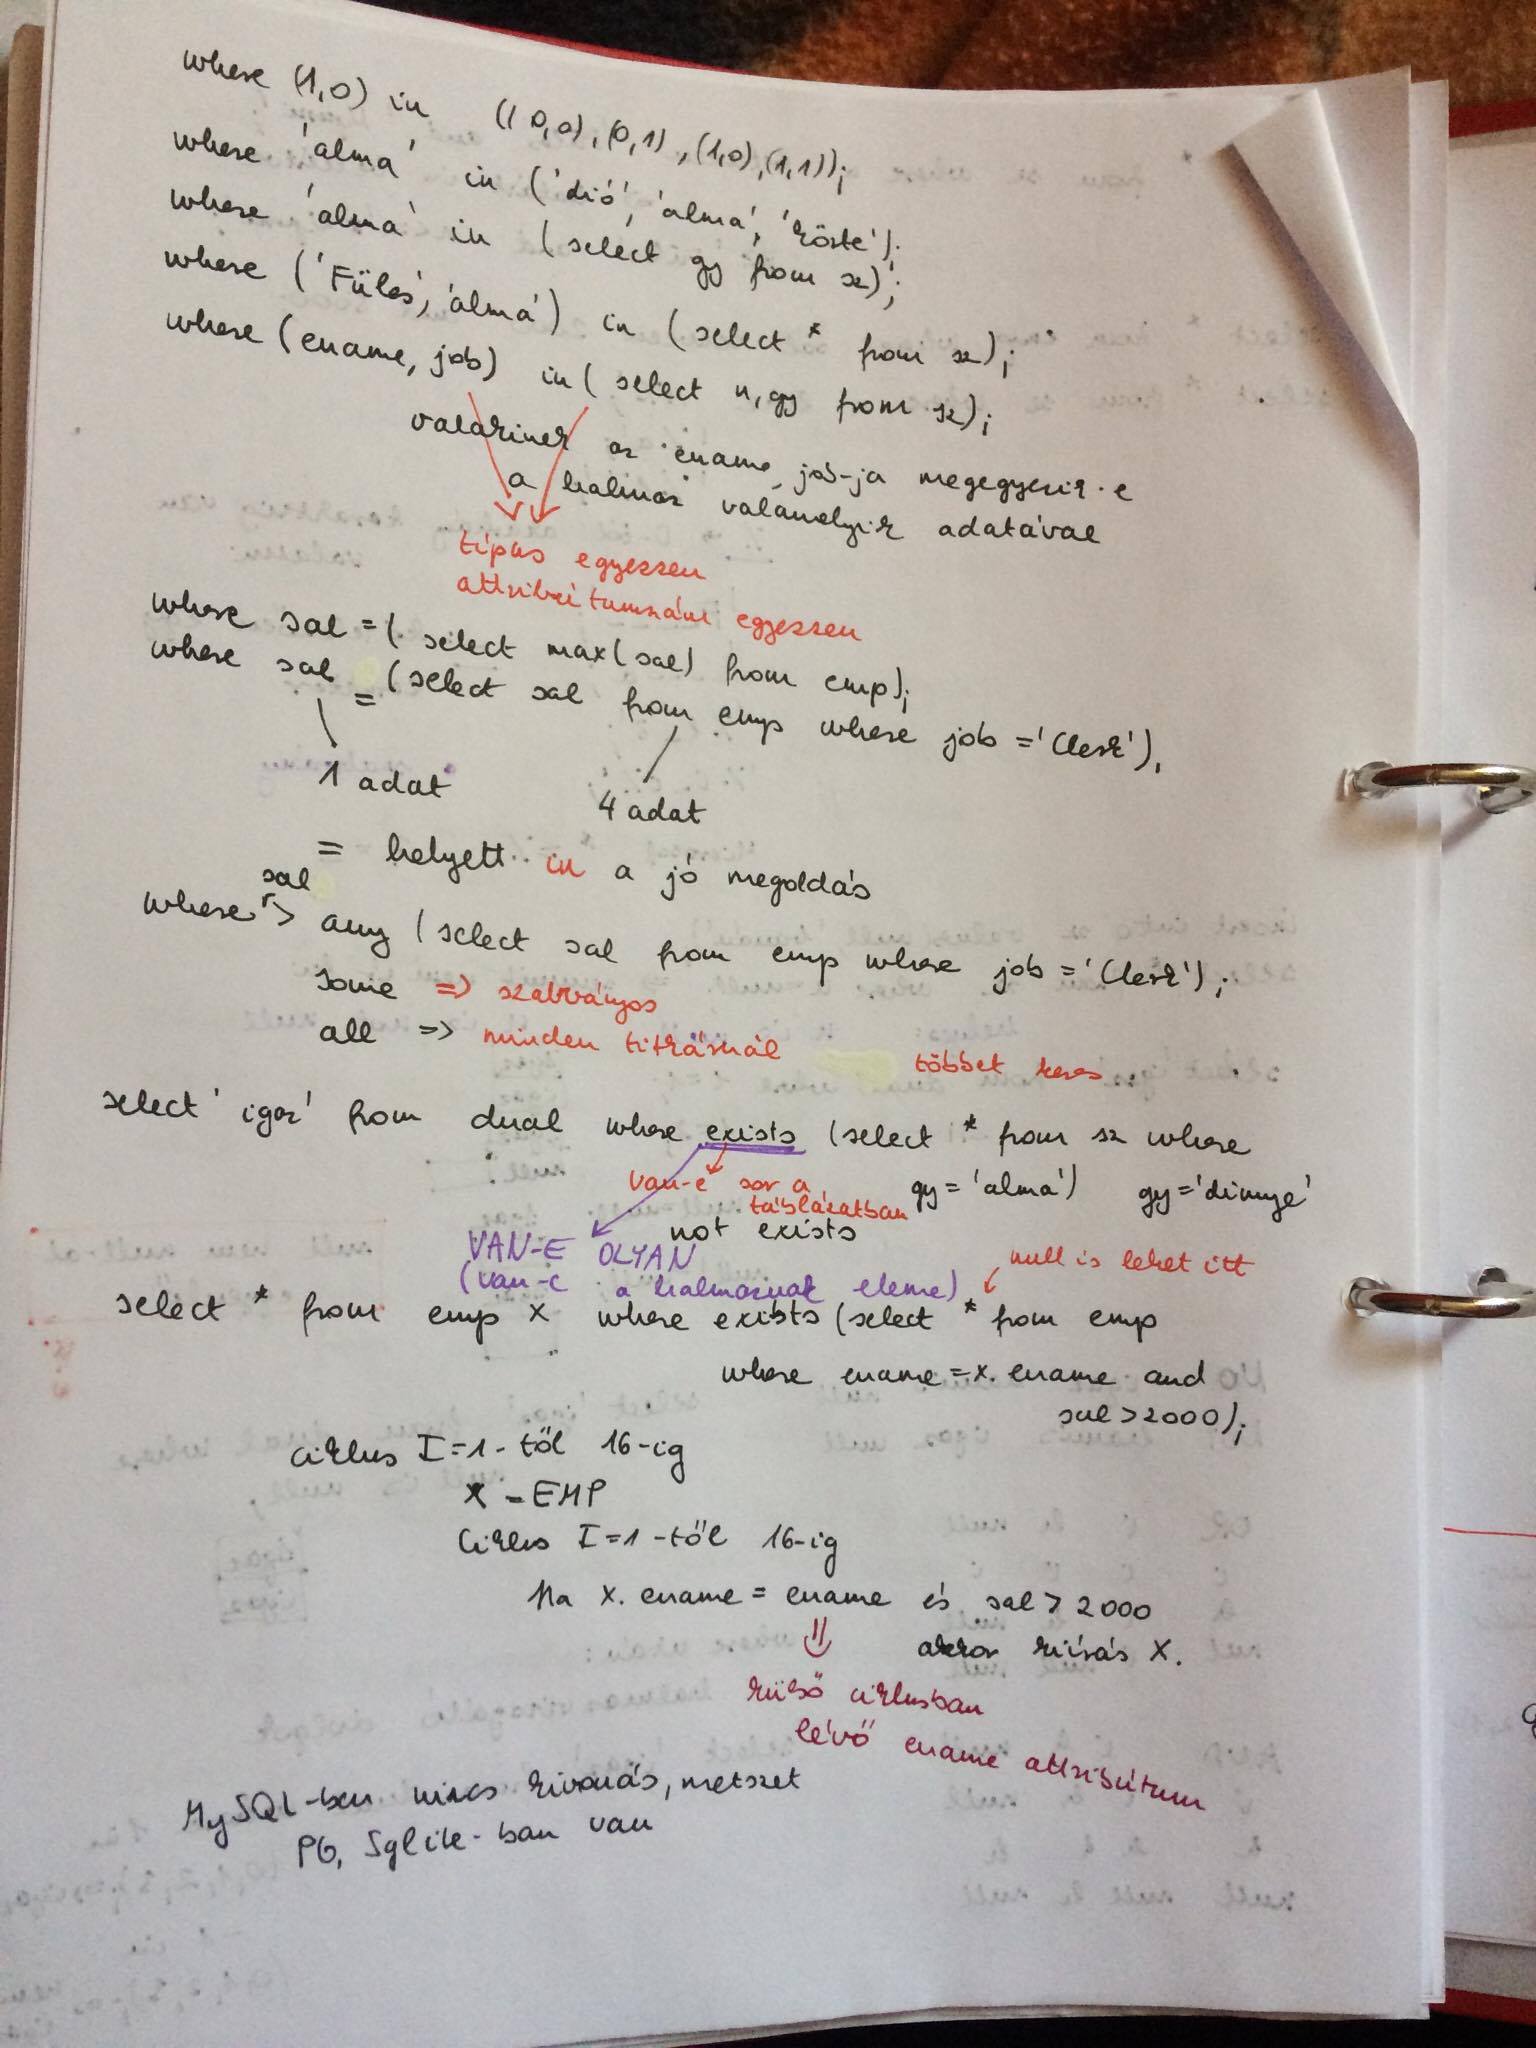 where (1,0) in ((0,0),(0,1),(1,0),(1,1));
where 'alma' in ('dió', 'alma', 'körte');
where 'alma' in (select gy from sz);
where ('Füles', 'alma') in (select * from sz);
where (ename, job) in (select n, gy from sz);
valakinek az ename, job-ja megegyezik-e
a halmaz valamelyik adatával
típus egyezzen
attribútumszám egyezzen
where sal = (select max(sal) from emp);
where sal = (select sal from emp where job = 'Clerk');
1 adat 4 adat
= helyett in a jó megoldás
sal
where > any (select sal from emp where job = 'Clerk');
some => szabványos
all => minden titkárnál többet keres
select 'igaz' from dual where exists (select * from sz where
gy = 'alma') gy = 'dinnye'
van-e sor a
táblázatban
not exists
VAN-E OLYAN
(van-e a halmaznak eleme)
null is lehet itt
select * from emp X where exists (select * from emp
where ename = x. ename and
sal > 2000);
ciklus I = 1-től 16-ig
X = EMP
Ciklus I = 1-től 16-ig
Ha X. ename = ename és sal > 2000
akkor kiírás X.
külső ciklusban
lévő ename attribútum
MySQL-ben nincs kivonás, metszet
PG, Sqlite-ban van